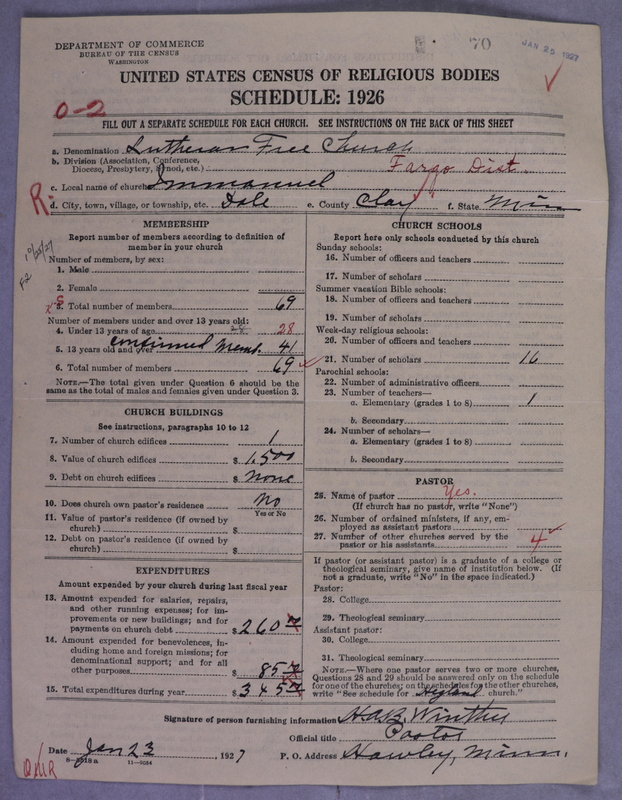 DEPARTMENT OF COMMERCE
BUREAU OF THE CENSUS
WASHINGTON
70
JAN 25 1927
UNITED STATES CENSUS OF RELIGIOUS BODIES
SCHEDULE: 1926
0-2
FILL OUT A SEPARATE SCHEDULE FOR EACH CHURCH. SEE INSTRUCTIONS ON THE BACK OF THIS SHEET
a. Denomination Lutheran Free Church
b. Division (Association, Conference,
Diocese, Presbytery, Synod, etc.) Fargo Dist.
c. Local name of church Immanuel
R. d. City, town, village, or township, etc. Dale e. County Clay f. State Minn
MEMBERSHIP
Report number of members according to definition of
member in your church
Number of members, by sex:
1. Male
2. Female
3. Total number of members 69
Number of members under and over 13 years old:
4. Under 13 years of age 28 28
confirmed Memb.
5. 13 years old and over 41
6. Total number of members 69
NOTE.—The total given under Question 6 should be the
same as the total of males and females given under Question 3.
CHURCH BUILDINGS
See instructions, paragraphs 10 to 12
7. Number of church edifices 1
8. Value of church edifices $ 1,500
9. Debt on church edifices $ None
10. Does church own pastor's residence No
Yes or No
11. Value of pastor's residence (if owned by
church) $
12. Debt on pastor's residence (if owned by
church) $
EXPENDITURES
Amount expended by your church during last fiscal year
13. Amount expended for salaries, repairs,
and other running expenses; for im-
provements or new buildings; and for
payments on church debt $ 260
14. Amount expended for benevolences, in-
cluding home and foreign missions; for
denominational support; and for all
other purposes $ 85
15. Total expenditures during year $ 345
CHURCH SCHOOLS
Report here only schools conducted by this church
Sunday schools:
16. Number of officers and teachers
17. Number of scholars
Summer vacation Bible schools:
18. Number of officers and teachers
19. Number of scholars
Week-day religious schools:
20. Number of officers and teachers
21. Number of scholars 16
Parochial schools:
22. Number of administrative officers
23. Number of teachers—
a. Elementary (grades 1 to 8) 1
b. Secondary
24. Number of scholars—
a. Elementary (grades 1 to 8)
b. Secondary
PASTOR
25. Name of pastor Yes.
(If church has no pastor, write "None")
26. Number of ordained ministers, if any, em-
ployed as assistant pastors
27. Number of other churches served by the
pastor or his assistants 4
If pastor (or assistant pastor) is a graduate of a college or
theological seminary, give name of institution below. (If
not a graduate, write "No" in the space indicated.)
Pastor:
28. College
29. Theological seminary
Assistant pastor:
30. College
31. Theological seminary
NOTE.—Where one pastor serves two or more churches,
Questions 28 and 29 should be answered only on the schedule
for one of the churches; on the schedules for the other churches,
write "See schedule for church."
Signature of person furnishing information H.A.B. Winther
Official title Pastor
Date Jan 23 1927 P. O. Address Hawley, Minn.
11—9034